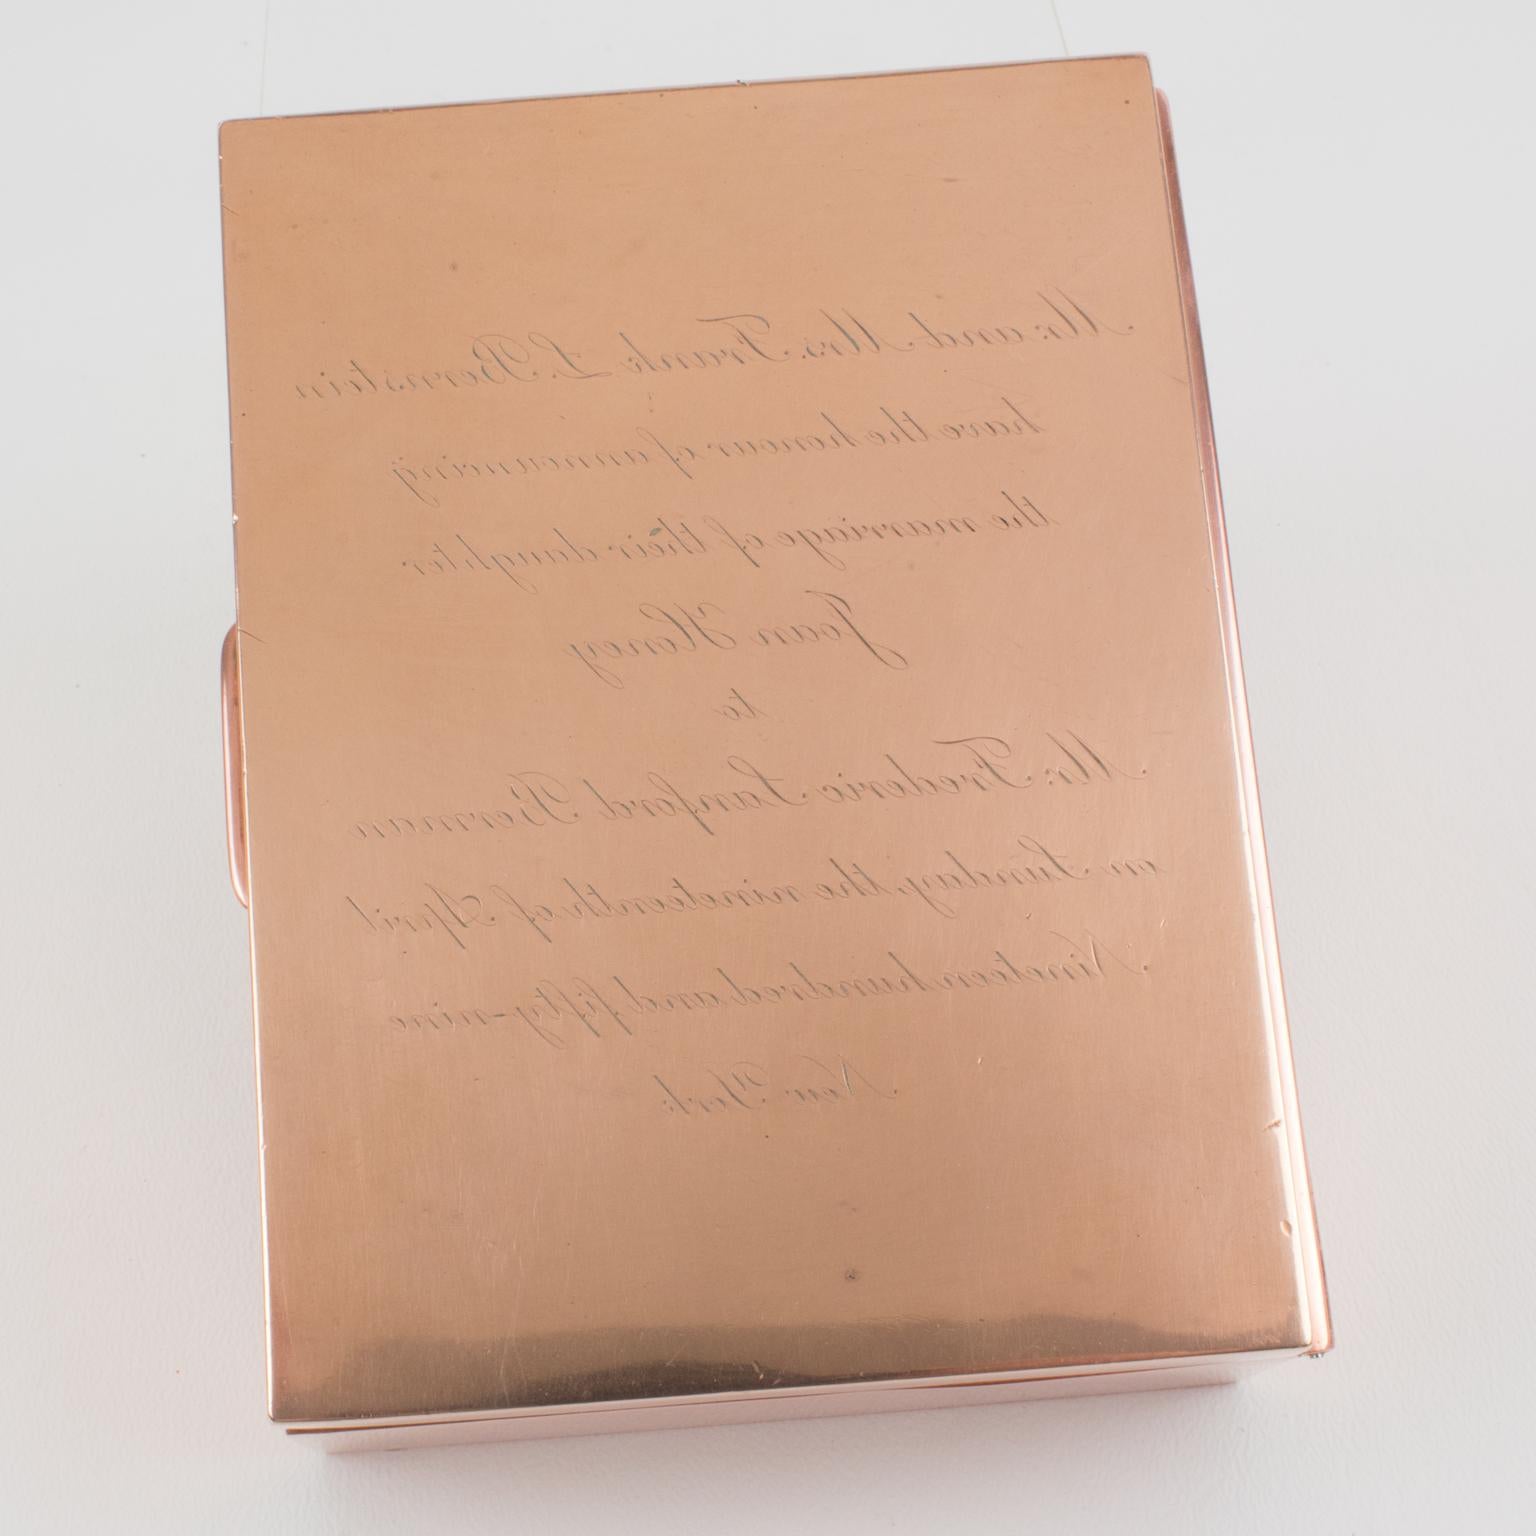 Mr. and Mrs. Frank L. Bernstein
have the honour of announcing
the marriage of their daughter
Joan Honey
to
Mr. Frederic Sanford Berman
on Sunday, the nineteenth of April
Nineteen hundred and fifty-nine
New York